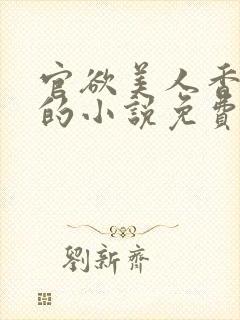 官欲美人香
的小說免費
劉新齊